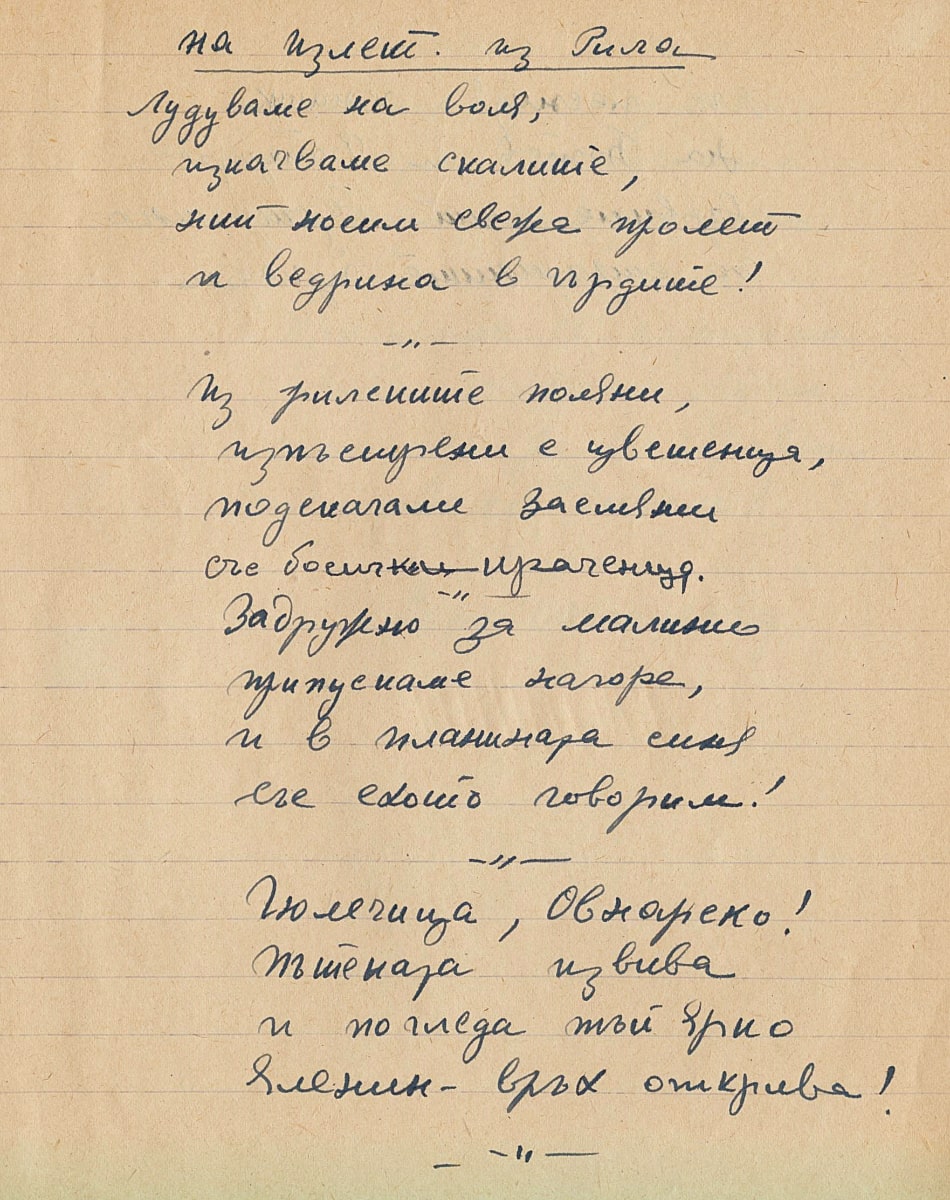 на излет. из Рила
Лудуваме на воля,
изкачваме скалите,
ний носим свежа пролет
и ведрина в гърдите!
-〃-
Из рилските поляни,
изпъстрени с цветенца,
подскачаме засмяни
със босички крачсенца.
-〃-
Задружно за малини
припускаме нагоре,
и в планината синя
със ехото говорим!
-〃-
Гюлечица, Овнарско!
Пътеката извива
и погледа тъй ярко
Еленин-връх открива!
- -〃-